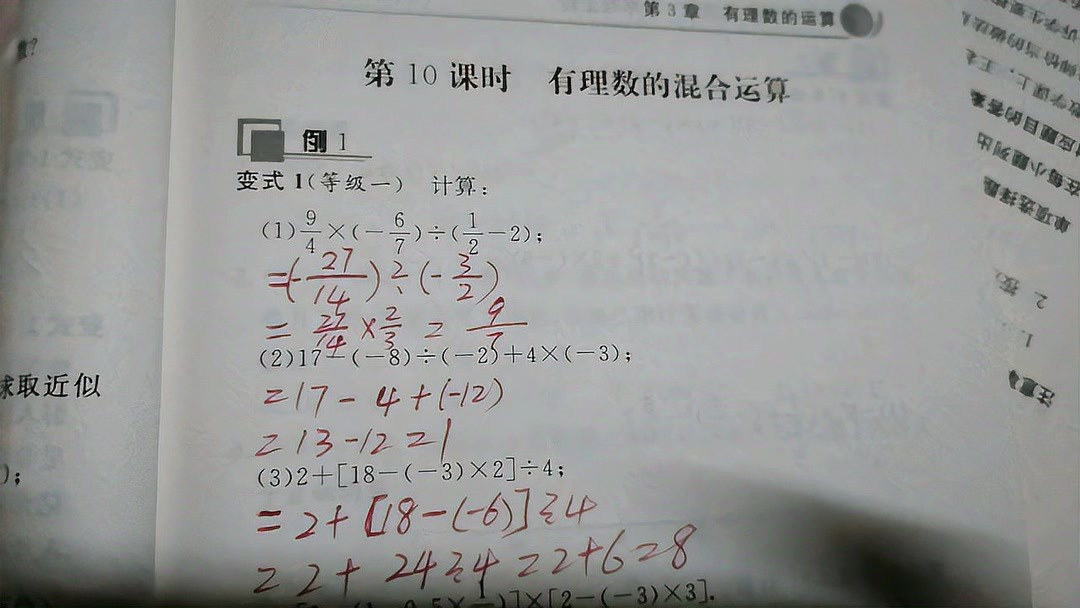 第3章 有理数的运算
第10课时 有理数的混合运算
例1
变式1(等级一) 计算:
(1)9/4×(-6/7)÷(1/2-2);
=(-27/14)÷(-3/2)
=27/14×2/3=9/7
(2)17-(-8)÷(-2)+4×(-3);
=17-4+(-12)
=13-12=1
(3)2+[18-(-3)×2]÷4;
=2+[18-(-6)]÷4
=2+24÷4=2+6=8
]×[2-(-3)×3].
求取近似
);
数?
单项选择题
在每小题列出
对应题目的答案
注意
1.
2.